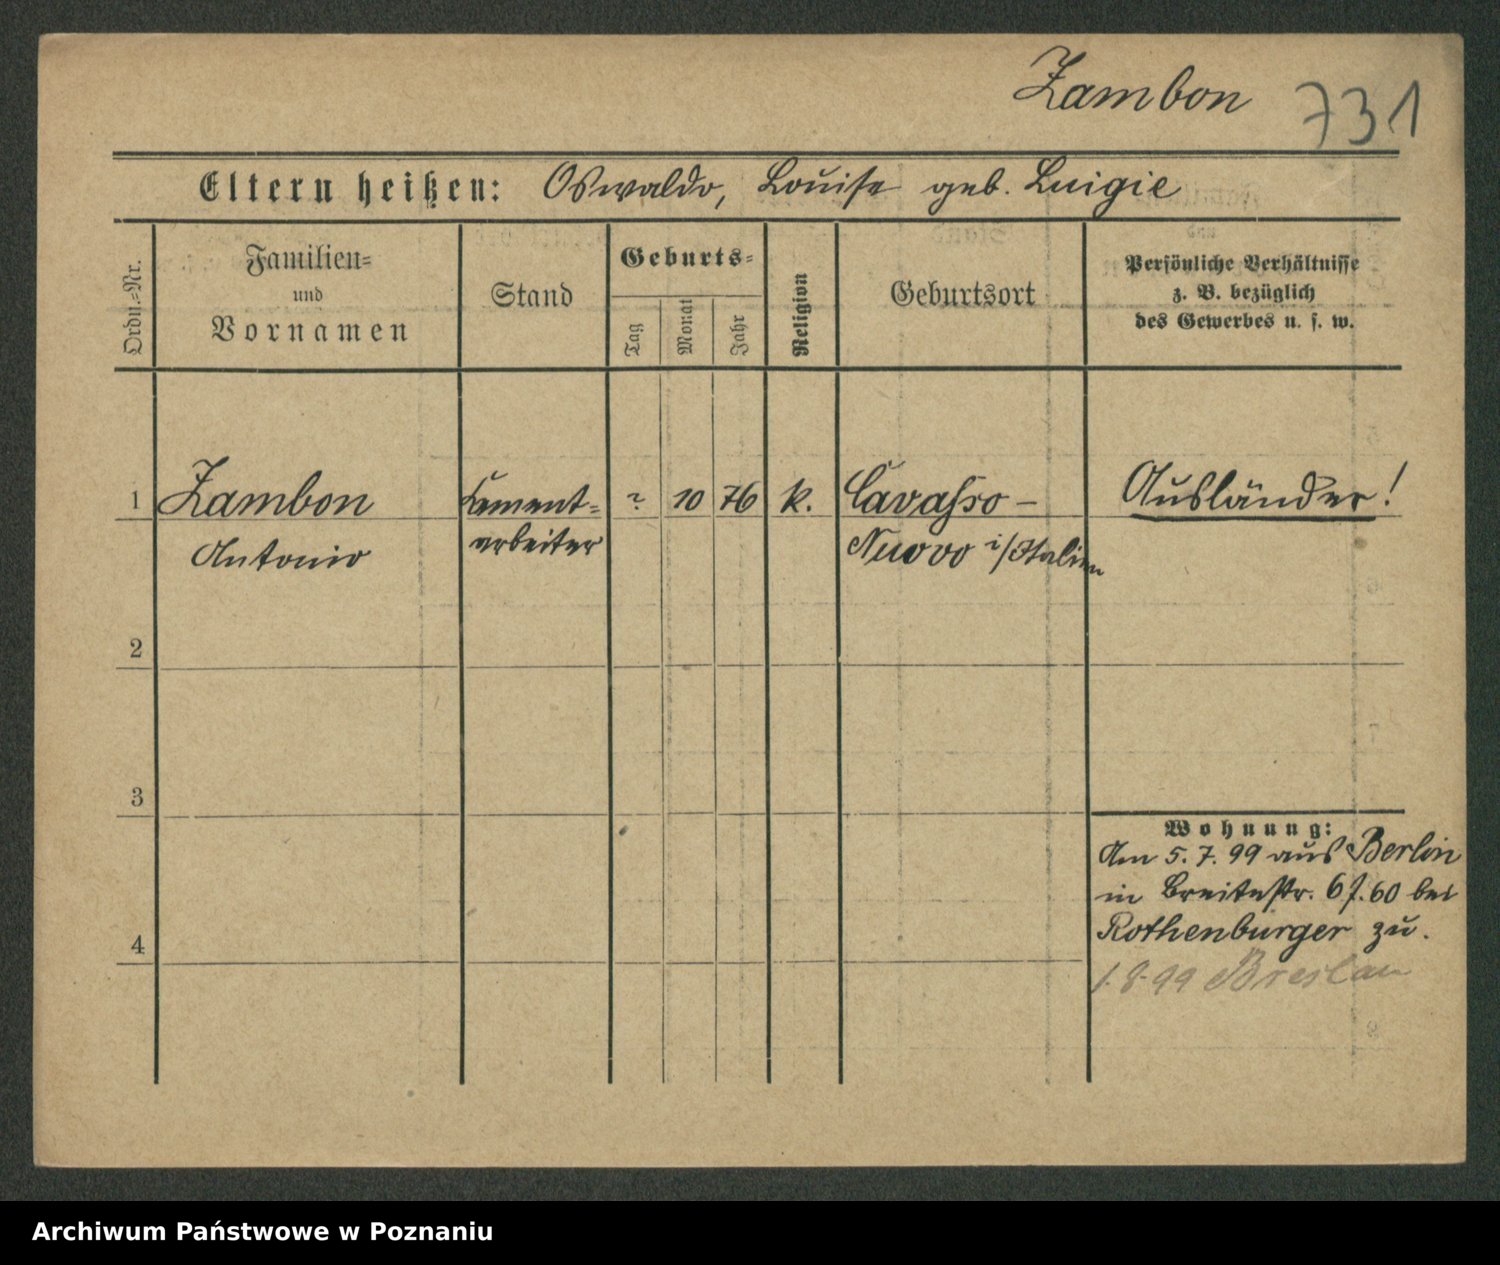 Zambon 731
Eltern heißen: Oswaldo, Louise geb. Luigie
Ordn.=Nr.
Familien=
und
Vornamen
Stand
Geburts=
Tag
Monat
Jahr
Religion
Geburtsort
Persönliche Verhältnisse
z. B. bezüglich
des Gewerbes u. s. w.
1 Zambon Cement= ? 10 76 k. Cavasso – Ausländer!
Antonio arbeiter Nuovo i/Italien
2
3
Wohnung:
Am 5.7.99 aus Berlin
in Breitestr. bei
4 Rothenburger zu.
1.8.99 Breslau
Archiwum Państwowe w Poznaniu